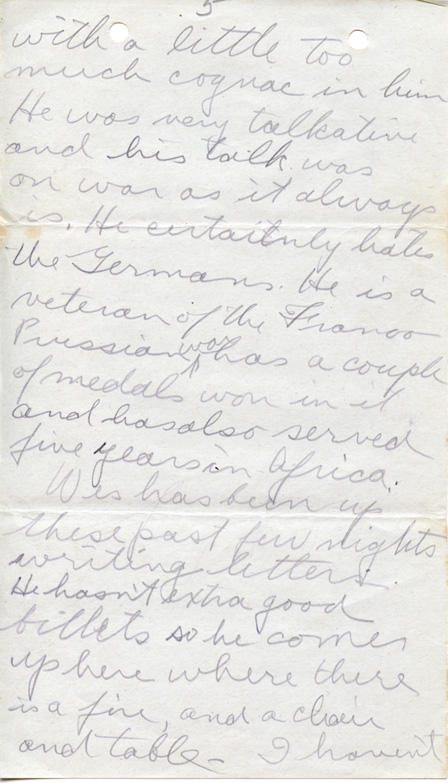 5
with a little too
much cognac in him
He was very talkative
and his talk was
on war as it always
is. He certaitnly hates
the Germans. He is a
veteran of the Franco
Prussian war has a couple
of medals won in it
and has also served
five years in Africa.
Wes has been up
these past few nights
writing letters
He hasn't extra good
billets so he comes
up here where there
is a fire, and a chair
and table - I haven't